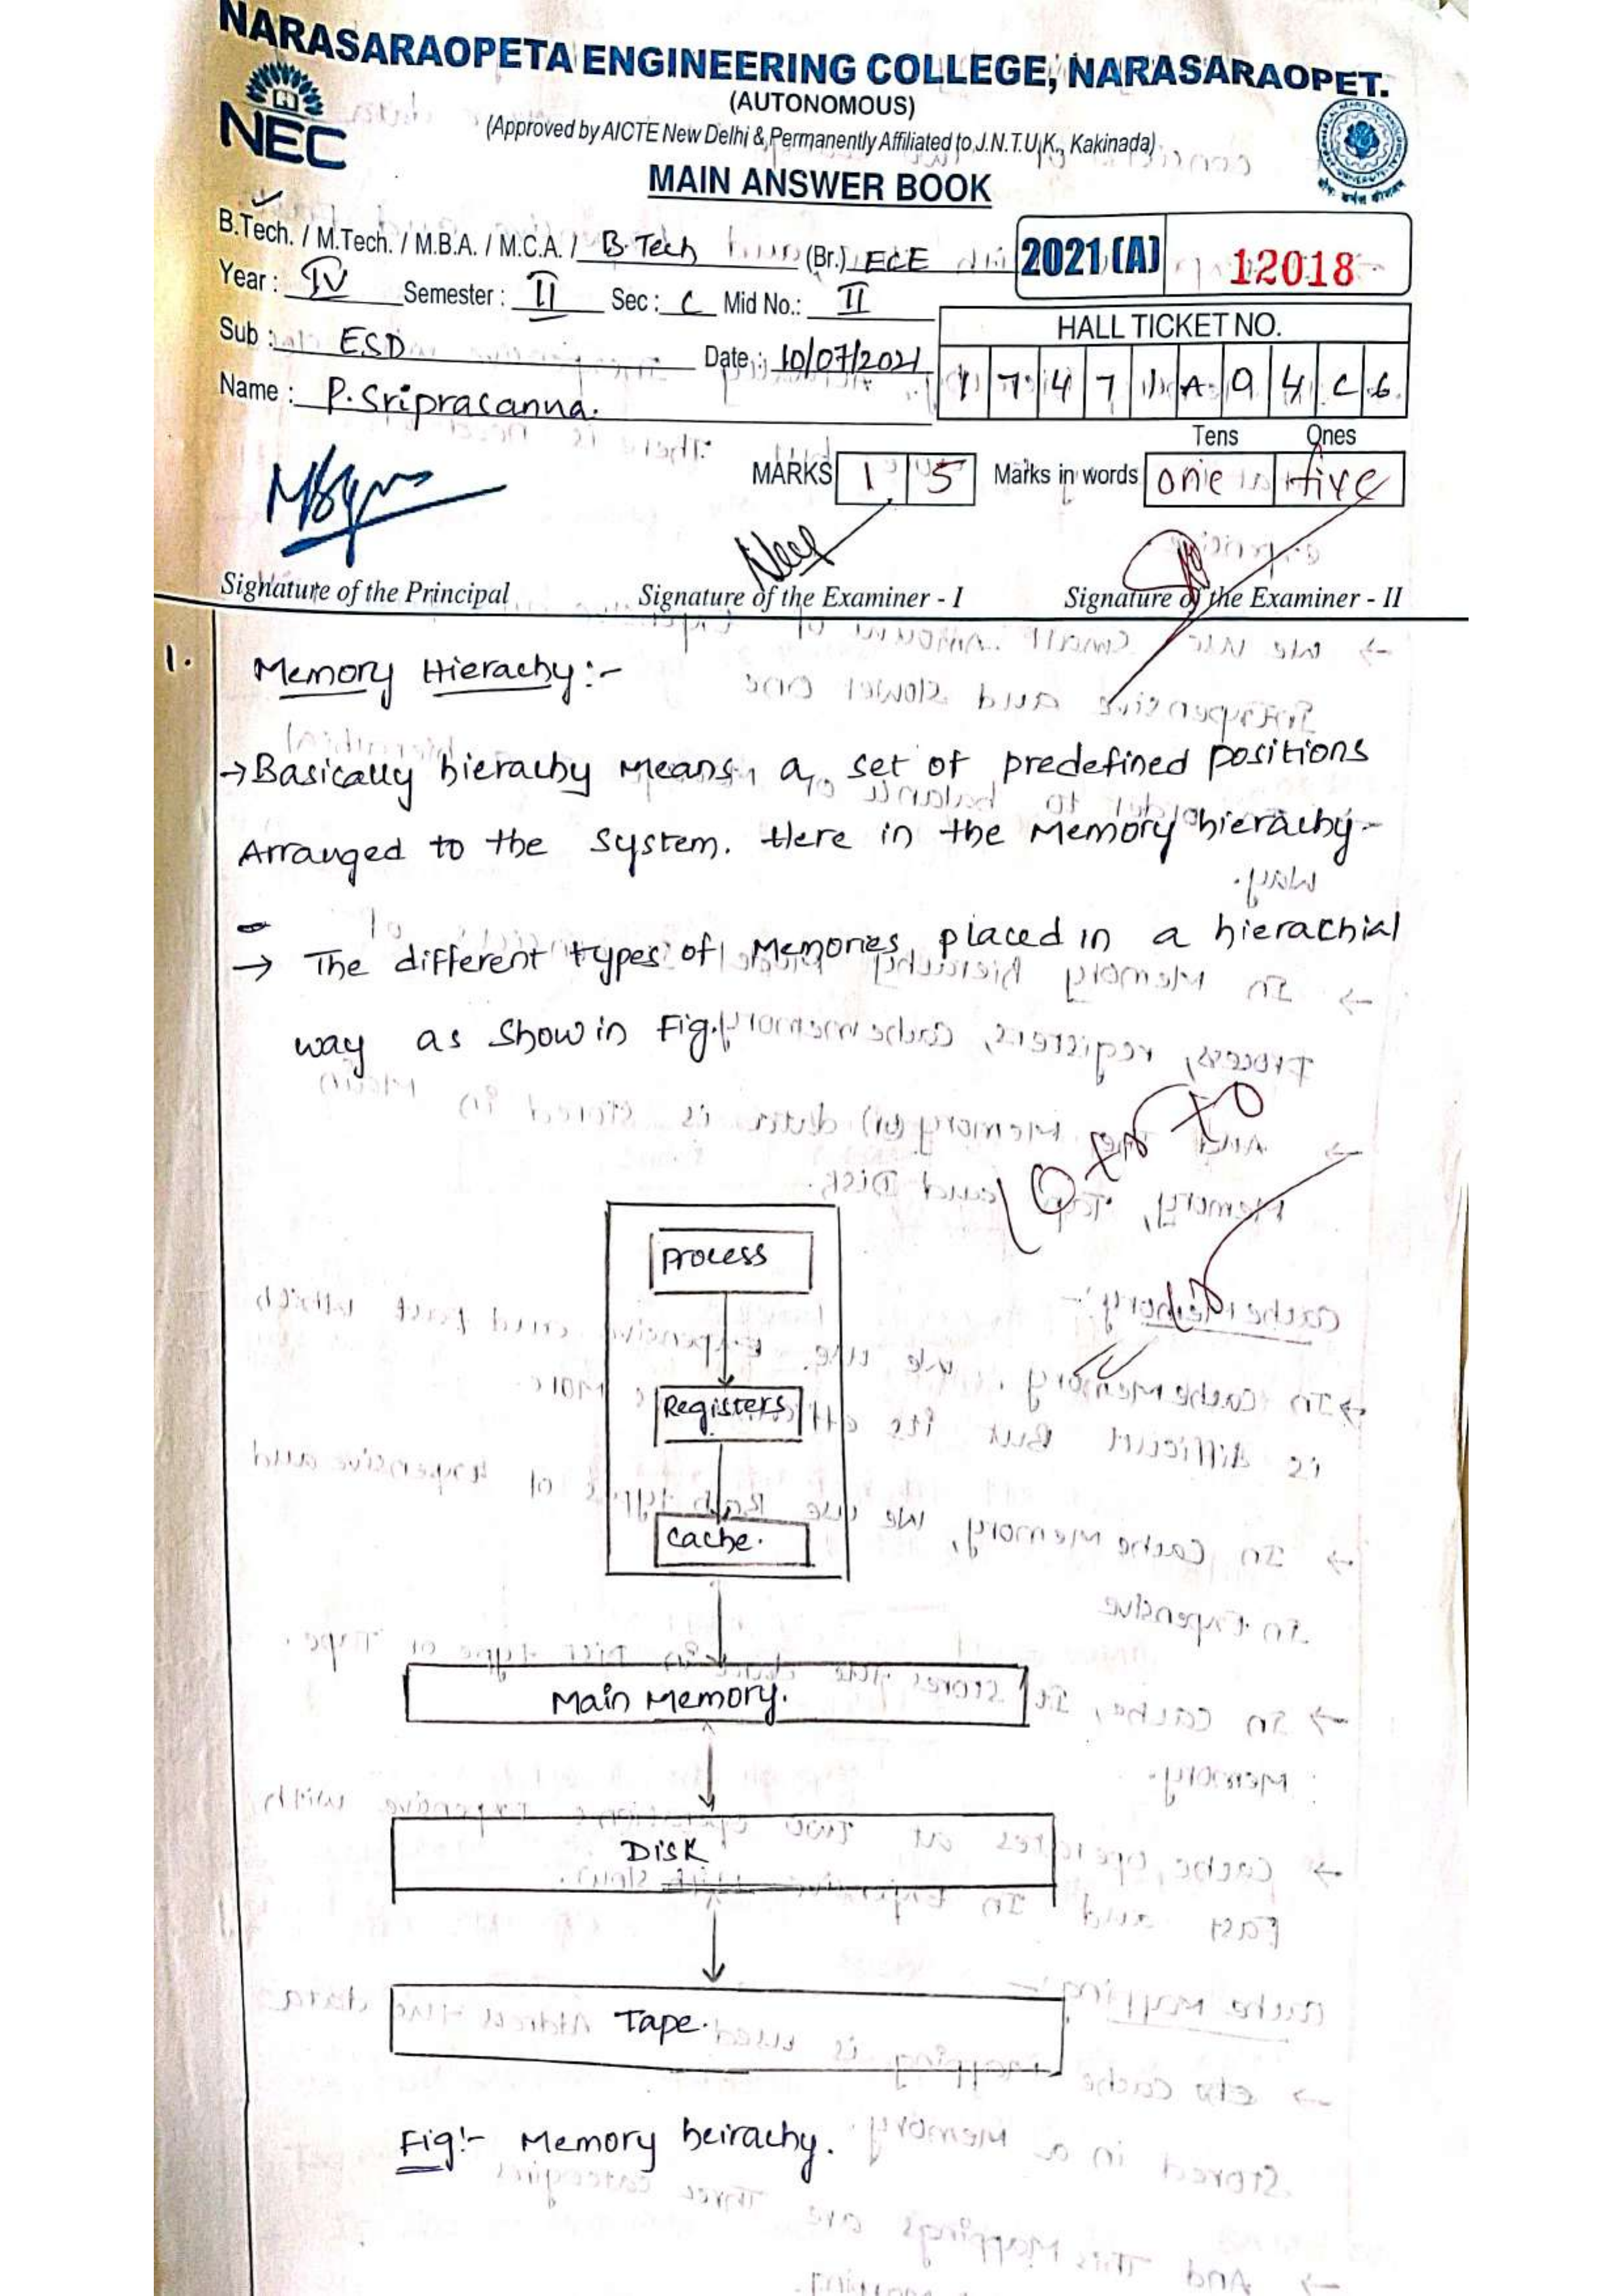 NARASARAOPETA ENGINEERING COLLEGE, NARASARAOPET.
(AUTONOMOUS)
NEC
(Approved by AICTE New Delhi & Permanently Affiliated to J.N.T.U.K., Kakinada)
MAIN ANSWER BOOK
B.Tech. / M.Tech. / M.B.A. / M.C.A. / B.Tech (Br.) ECE
2021 (A) 12018
Year : IV Semester : II Sec : C Mid No.: II
HALL TICKET NO.
Sub : ESD Date : 10/07/2021
1 7 4 7 1 A 0 4 C 6
Name : P.Sriprasanna.
Tens Ones
MARKS 1 5 Marks in words one five
Signature of the Principal Signature of the Examiner - I Signature of the Examiner - II
1. Memory Hierachy:-
→ Basically hierachy means, a set of predefined positions
Arranged to the system. Here in the Memory hierachy-
→ The different types of Memories placed in a hierachial
way as show in Fig.
Process
Registers
Cache.
Main Memory.
Disk
Tape.
Fig:- Memory heirachy.